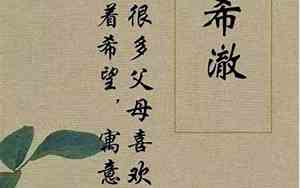 希澈
很多父母喜欢
着希望，寓意